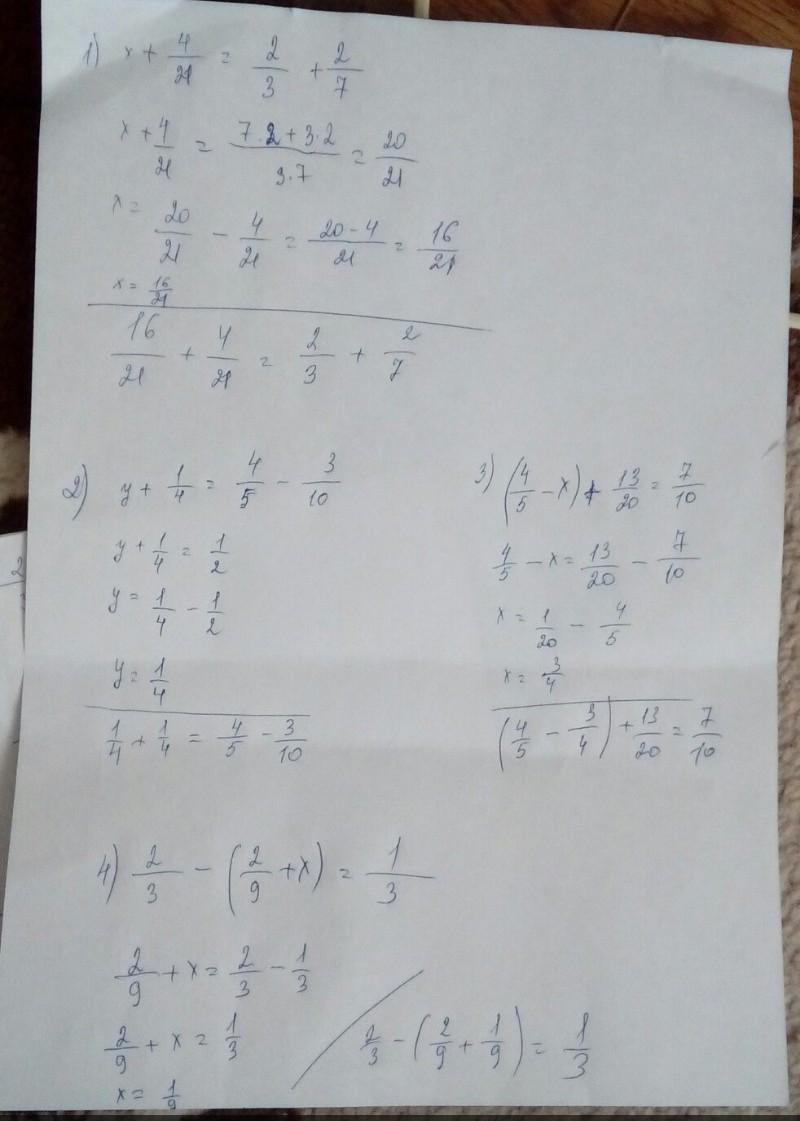 1) x + 4/21 = 2/3 + 2/7
x + 4/21 = (7·2+3·2)/(3·7) = 20/21
x = 20/21 - 4/21 = (20-4)/21 = 16/21
x = 16/21
16/21 + 4/21 = 2/3 + 2/7
2) y + 1/4 = 4/5 - 3/10
y + 1/4 = 1/2
y = 1/4 - 1/2
y = 1/4
1/4 + 1/4 = 4/5 - 3/10
3) (4/5 - x) + 13/20 = 7/10
4/5 - x = 13/20 - 7/10
x = 1/20 - 4/5
x = 3/4
(4/5 - 3/4) + 13/20 = 7/10
4) 2/3 - (2/9 + x) = 1/3
2/9 + x = 2/3 - 1/3
2/9 + x = 1/3
x = 1/9
2/3 - (2/9 + 1/9) = 1/3
2